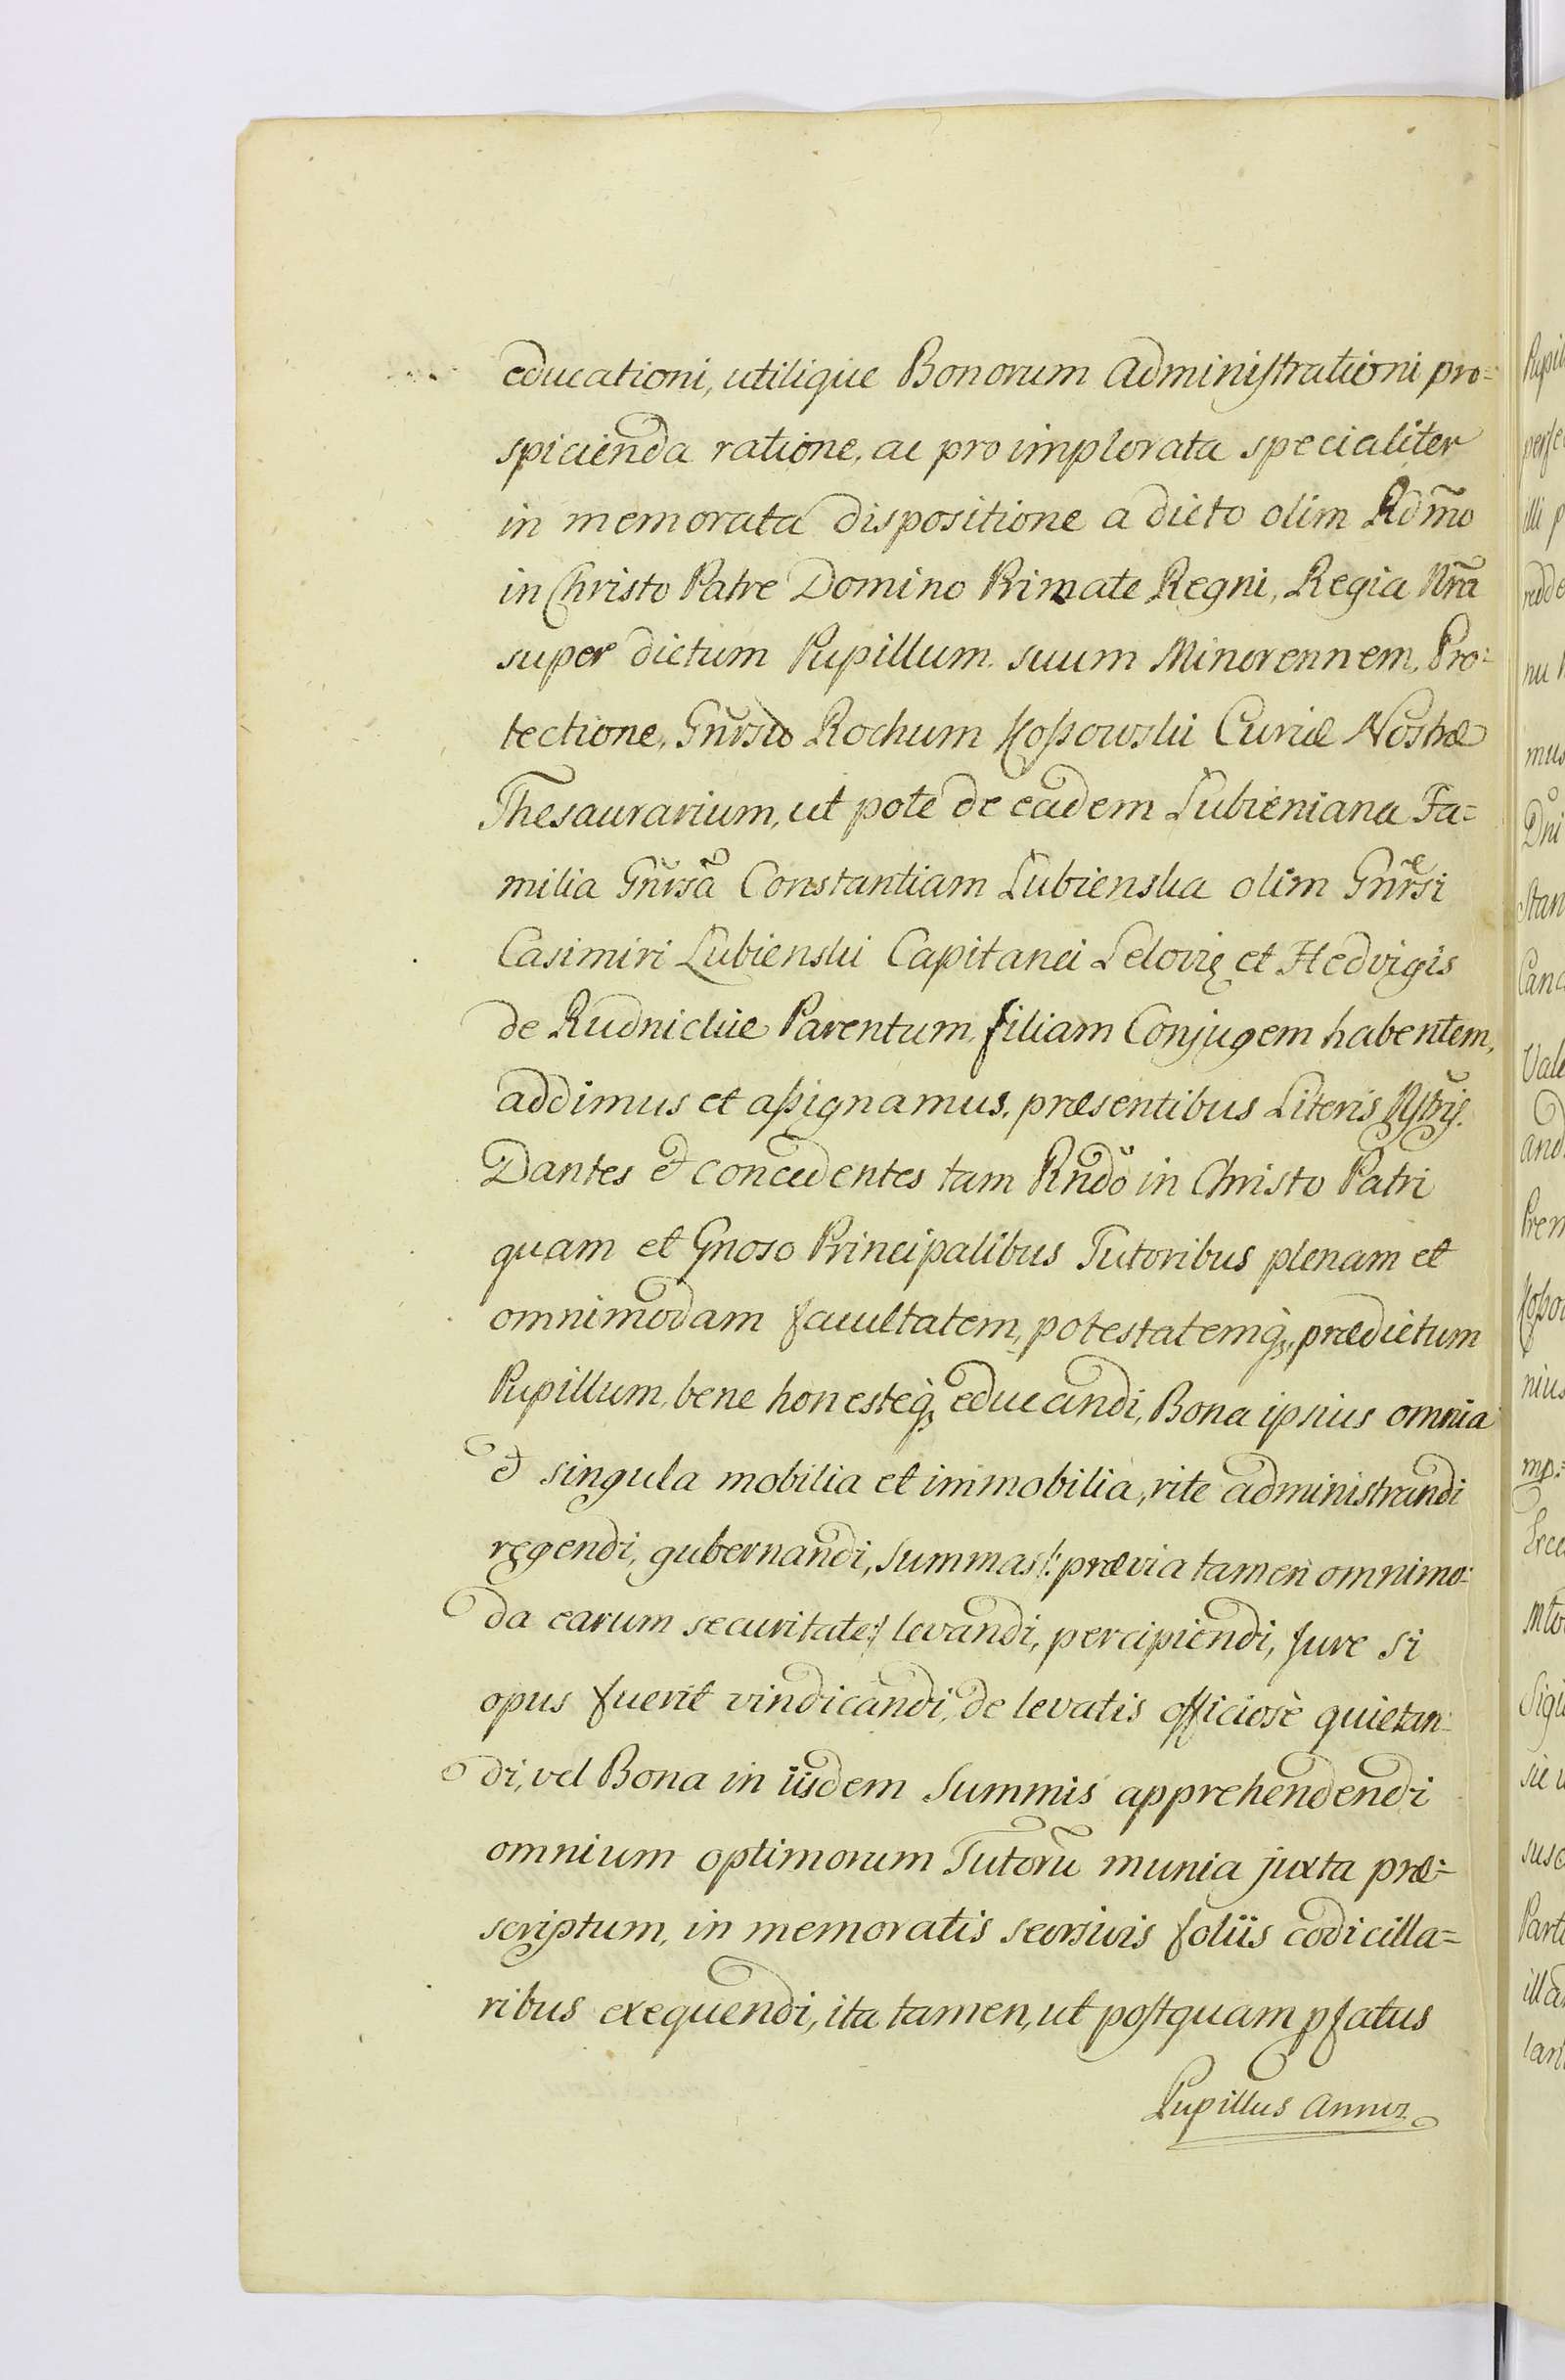 educationi, utilique Bonorum administrationi pro=
spicienda ratione, ac pro implorata specialiter
in memorata dispositione a dicto olim Rdm̃o
in Christo Patre Domino Primate Regni, Regia Nr̃a
super dictum Pupillum suum Minorennem, Pro=
tectione, Rochum Koßowski Curiæ Nostræ
Thesaurarium, ut pote de eadem Lubieniana Fa=
milia Constantiam Lubienska olim
Casimiri Lubienski Capitanei Lelovię et Hedvigis
de Rudnickie Parentum filiam Conjugem habentem,
addimus et aßignamus, præsentibus Literis Nr̃is.
Dantes & concedentes tam Rndo in Christo Patri
quam et Gnoso Principalibus Tutoribus plenam et
omnimodam facultatem, potestatemq; prædictum
Pupillum, bene honesteq; educandi, Bona ipsius omnia
& singula mobilia et immobilia, rite administrandi
regendi, gubernandi, Summas /: prævia tamen omnimo=
da earum securitate :/ levandi, percipiendi, Jure si
opus fuerit vindicandi, de levatis officiosè quietan=
di, vel Bona in iisdem Summis apprehendendi
omnium optimorum Tutorũ munia juxta præ=
scriptum, in memoratis seorsivis foliis codicilla=
ribus exequendi, ita tamen, ut postquam pfatus
Pupillus